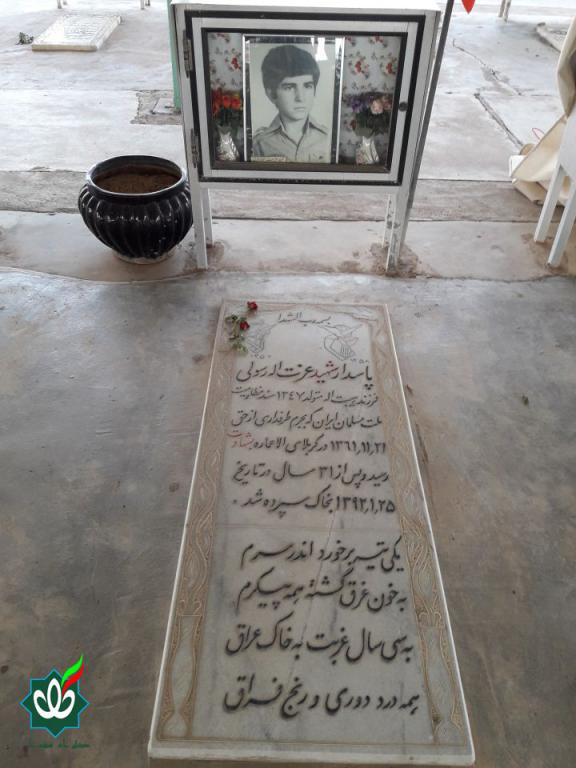 بسم رب الشهدا
پاسدار شهید عزت اله رسولی
فرزند بیت اله متولد ۱۳۴۷ سند مظلومیت
ملت مسلمان ایران که بجرم طرفداری از حق
۱۳۶۱,۱۱,۲۱ در کربلای الاعماره بشهادت
رسید و پس از ۳۱ سال در تاریخ
۱۳۹۲,۱,۲۵ بخاک سپرده شد .
یکی تیر برخورد اندر سرم
به خون غرق گشته همه پیکرم
به سی سال غربت به خاک عراق
همه درد دوری و رنج فراق